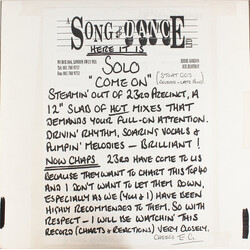 A
SONG & DANCE
HERE IT IS
SOLO
"COME ON"
STEAMIN' OUT OF 23RD PRECINCT, A
12" SLAB OF HOT MIXES THAT
DEMANDS YOUR FULL-ON ATTENTION.
DRIVIN' RHYTHM, SOARING VOCALS &
PUMPIN' MELODIES – BRILLIANT!
NOW CHAPS. 23RD HAVE COME TO US
BECAUSE THEY WANT TO CHART THIS TOP 40
AND I DON'T WANT TO LET THEM DOWN,
ESPECIALLY AS WE (YOU & I) HAVE BEEN
HIGHLY RECOMMENDED TO THEM. SO WITH
RESPECT – I WILL BE WATCHIN' THIS
RECORD (CHARTS & REACTIONS) VERY CLOSELY.